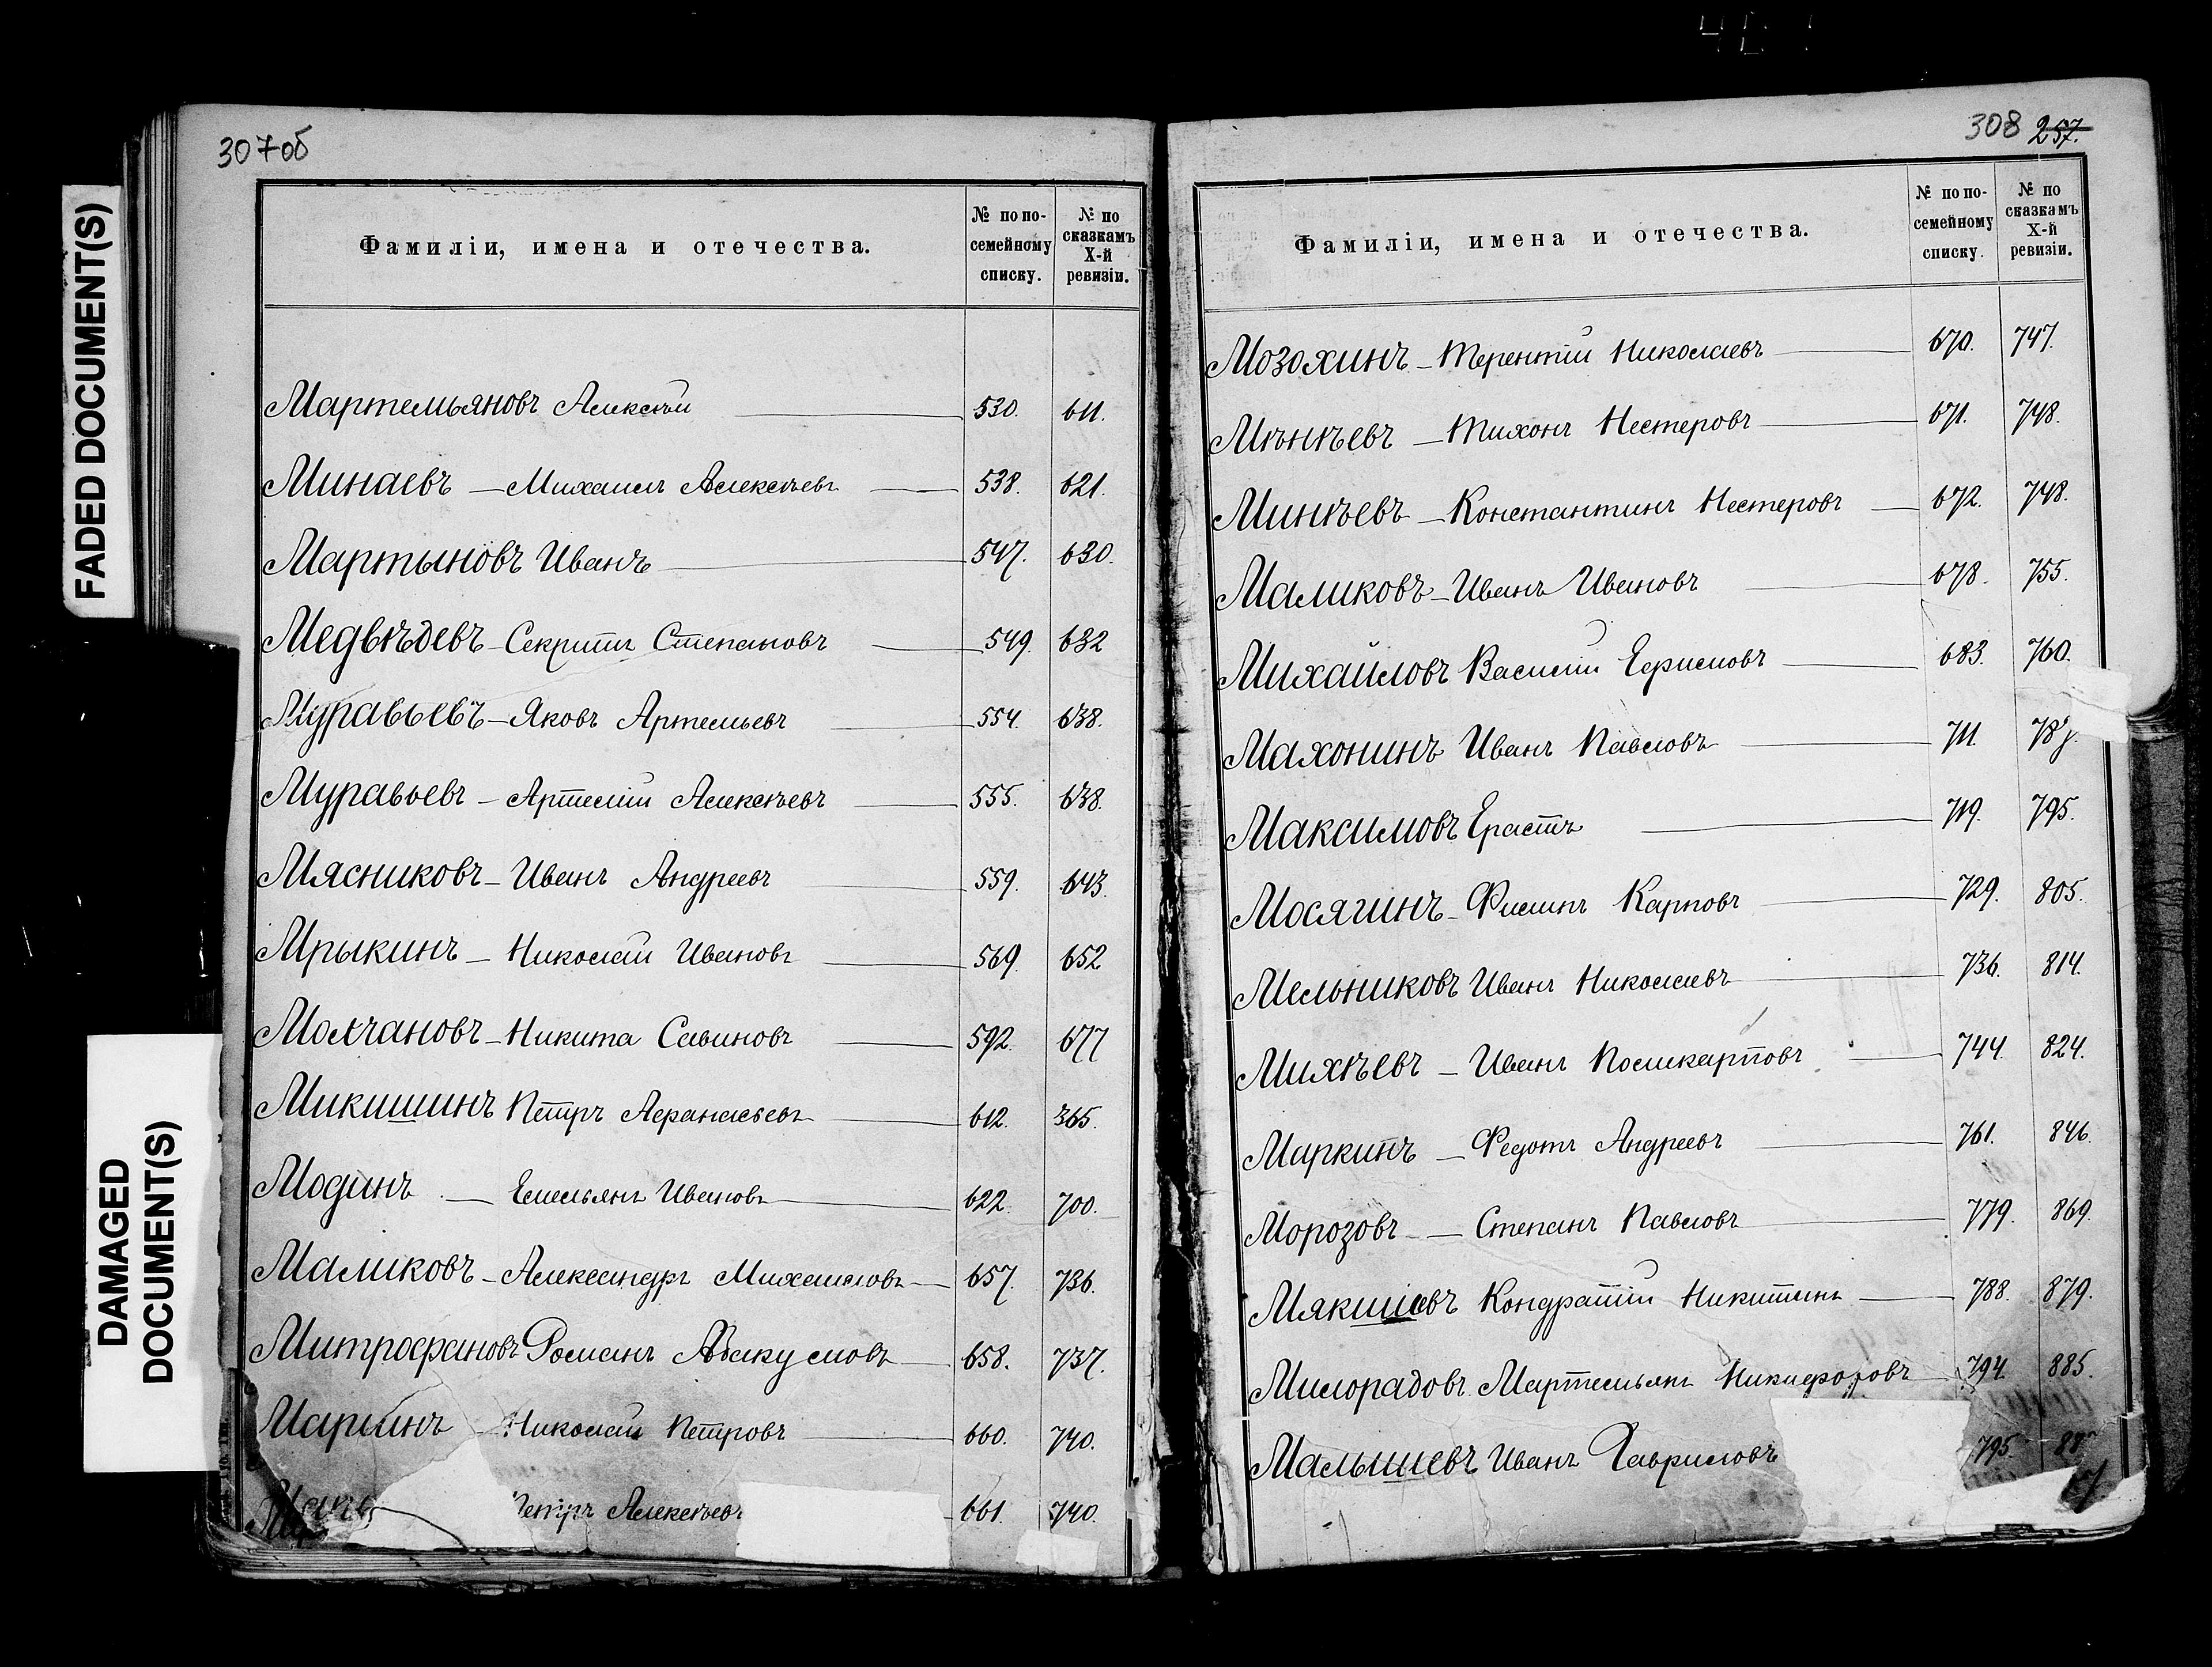 FADED DOCUMENT(S)
DAMAGED
DOCUMENT(S)
307об
Фамиліи, имена и отечества. № по по-семейному списку. № по сказкамъ X-й ревизіи.
Мартемьяновъ Алексѣй 530. 611.
Минаевъ — Михаилъ Алексѣевъ 538. 621.
Мартыновъ Иванъ 547. 630.
Медвѣдевъ — Секритъ Степановъ 549. 632
Муравьевъ — Яковъ Артемьевъ 554. 638.
Муравьевъ — Артемій Алексѣевъ 555. 638.
Мясниковъ — Иванъ Андреевъ 559. 643.
Мрыкинъ — Николай Ивановъ 569. 652
Молчановъ — Никита Савиновъ 592. 677
Микишинъ Петръ Афанасьевъ 612. 365.
Модинъ — Емельянъ Ивановъ 622. 700.
Маликовъ — Александръ Михаиловъ 657. 736.
Митрофановъ Романъ Абакумовъ 658. 737.
Маркинъ Николай Петровъ 660. 740.
Петръ Алексѣевъ 661. 740.
308 257.
Фамиліи, имена и отечества. № по по-семейному списку. № по сказкамъ X-й ревизіи.
Мозохинъ — Терентій Николаевъ 670. 747.
Мѣнѣевъ — Тихонъ Нестеровъ 671. 748.
Минѣевъ — Константинъ Нестеровъ 672. 748.
Маликовъ — Иванъ Ивановъ 678. 755.
Михайловъ Василій Ефимовъ 683. 760.
Махонинъ Иванъ Павловъ 711. 787.
Максимовъ Ерастъ 719. 795.
Мосягинъ — Филипъ Карповъ 729. 805.
Мельниковъ Иванъ Николаевъ 736. 814.
Михѣевъ — Иванъ Поликарповъ 744. 824.
Маркинъ — Федотъ Андреевъ 761. 846.
Морозовъ — Степанъ Павловъ 779. 869.
Мякишевъ Кондратій Никитинъ 788. 879.
Милорадовъ Мартемьянъ Никифоровъ 794. 885.
Малышевъ Иванъ Гавриловъ 795